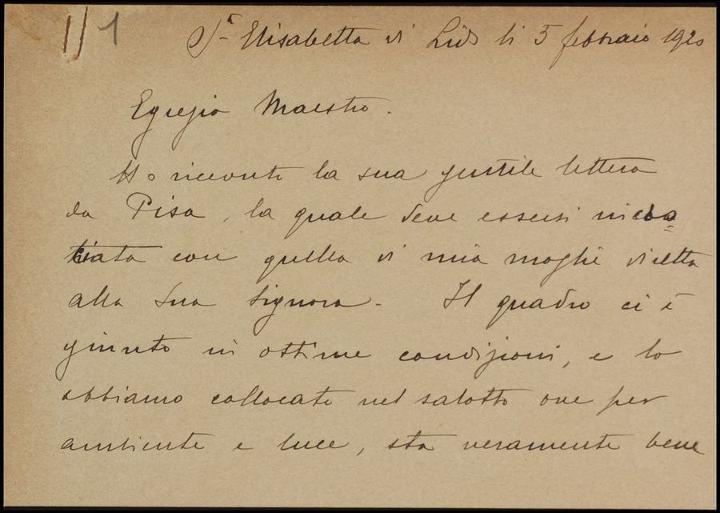 1/1
Sta Elisabetta di Lido li 5 febbraio 1920
Egregio Maestro.
Ho ricevuto la sua gentile lettera
da Pisa, la quale deve essersi
ciata con quella di mia moglie diretta
alla Sua Signora. Il quadro ci è
giunto in ottime condizioni, e lo
abbiamo collocato nel salotto ove per
ambiente e luce, sta veramente bene